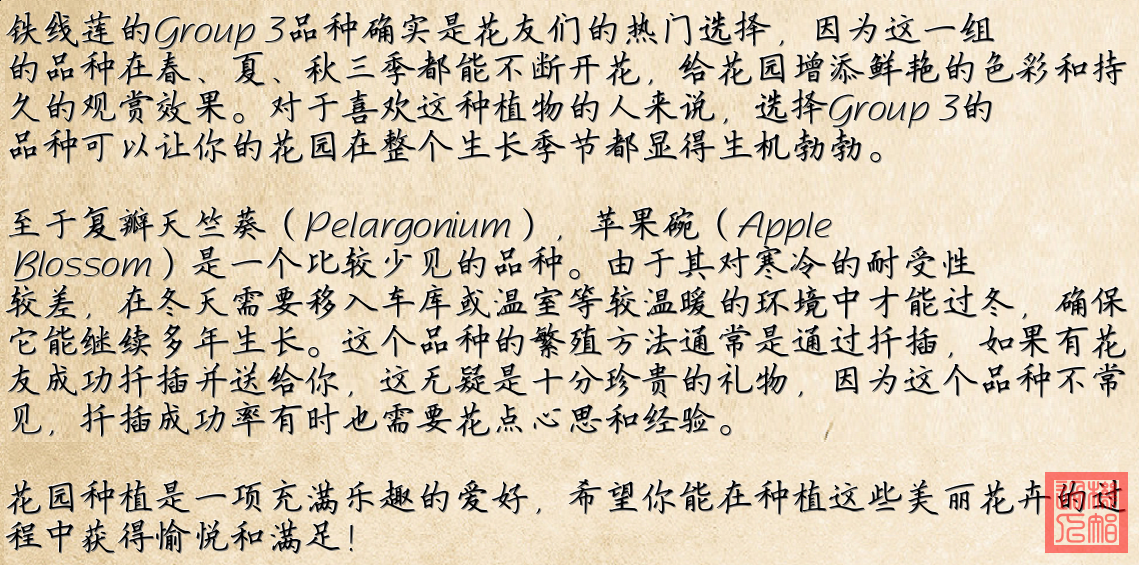 铁线莲的Group 3品种确实是花友们的热门选择，因为这一组
的品种在春、夏、秋三季都能不断开花，给花园增添鲜艳的色彩和持
久的观赏效果。对于喜欢这种植物的人来说，选择Group 3的
品种可以让你的花园在整个生长季节都显得生机勃勃。
至于复瓣天竺葵（Pelargonium），苹果碗（Apple
Blossom）是一个比较少见的品种。由于其对寒冷的耐受性
较差，在冬天需要移入车库或温室等较温暖的环境中才能过冬，确保
它能继续多年生长。这个品种的繁殖方法通常是通过扦插，如果有花
友成功扦插并送给你，这无疑是十分珍贵的礼物，因为这个品种不常
见，扦插成功率有时也需要花点心思和经验。
花园种植是一项充满乐趣的爱好，希望你能在种植这些美丽花卉的过
程中获得愉悦和满足！